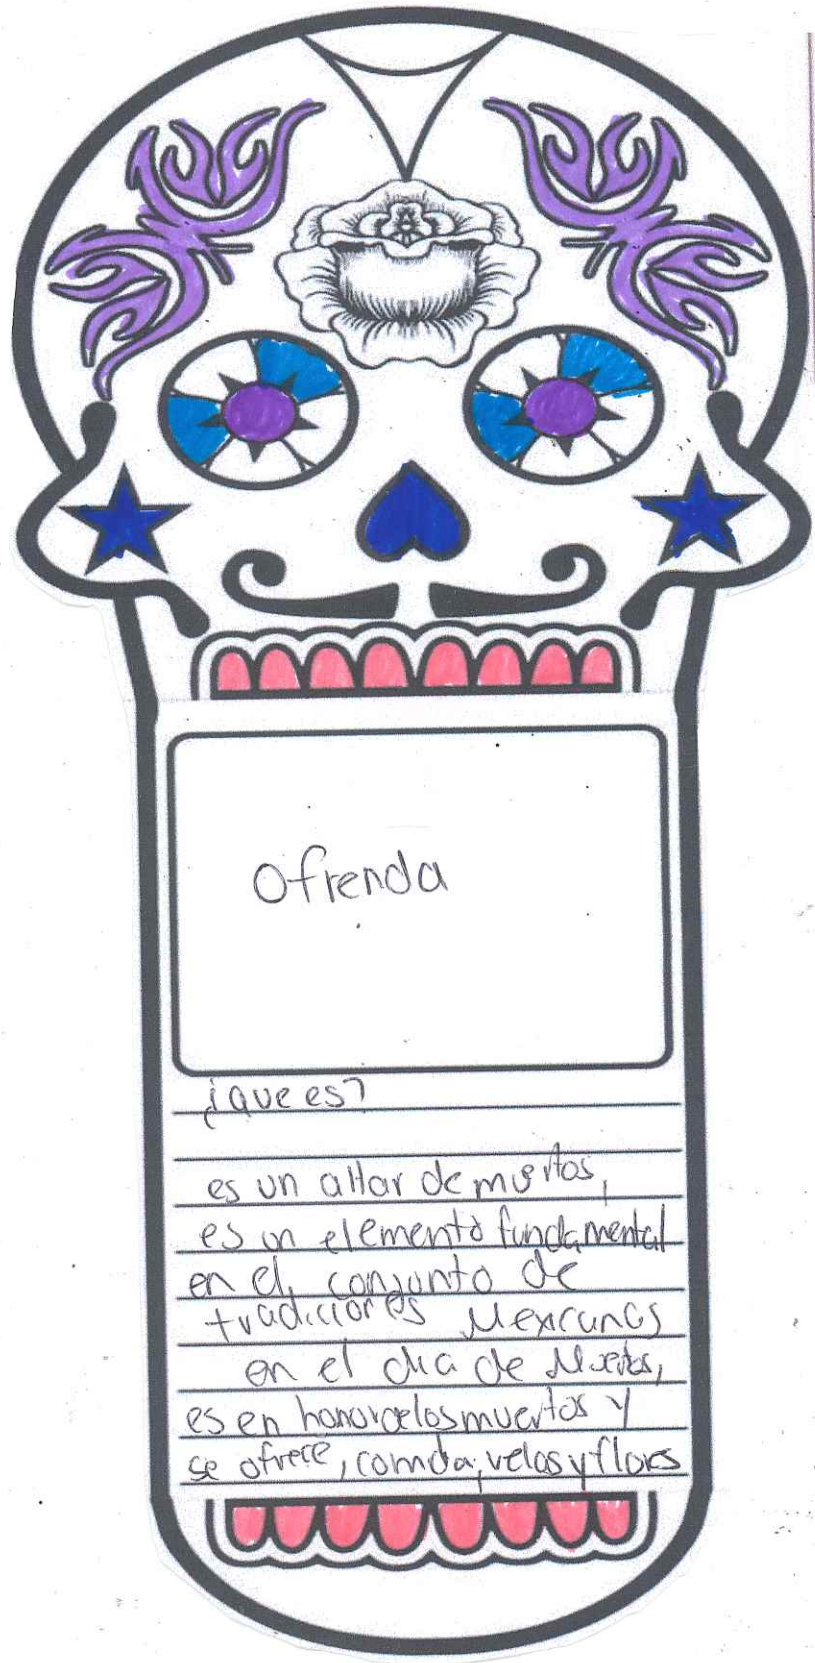 Ofrenda
¿que es?
es un altar de muertos,
es un elemento fundamental
en el conjunto de
tradiciones Mexicanas
en el dia de Muertos,
es en honor de los muertos y
se ofrece, comida, velas y flores